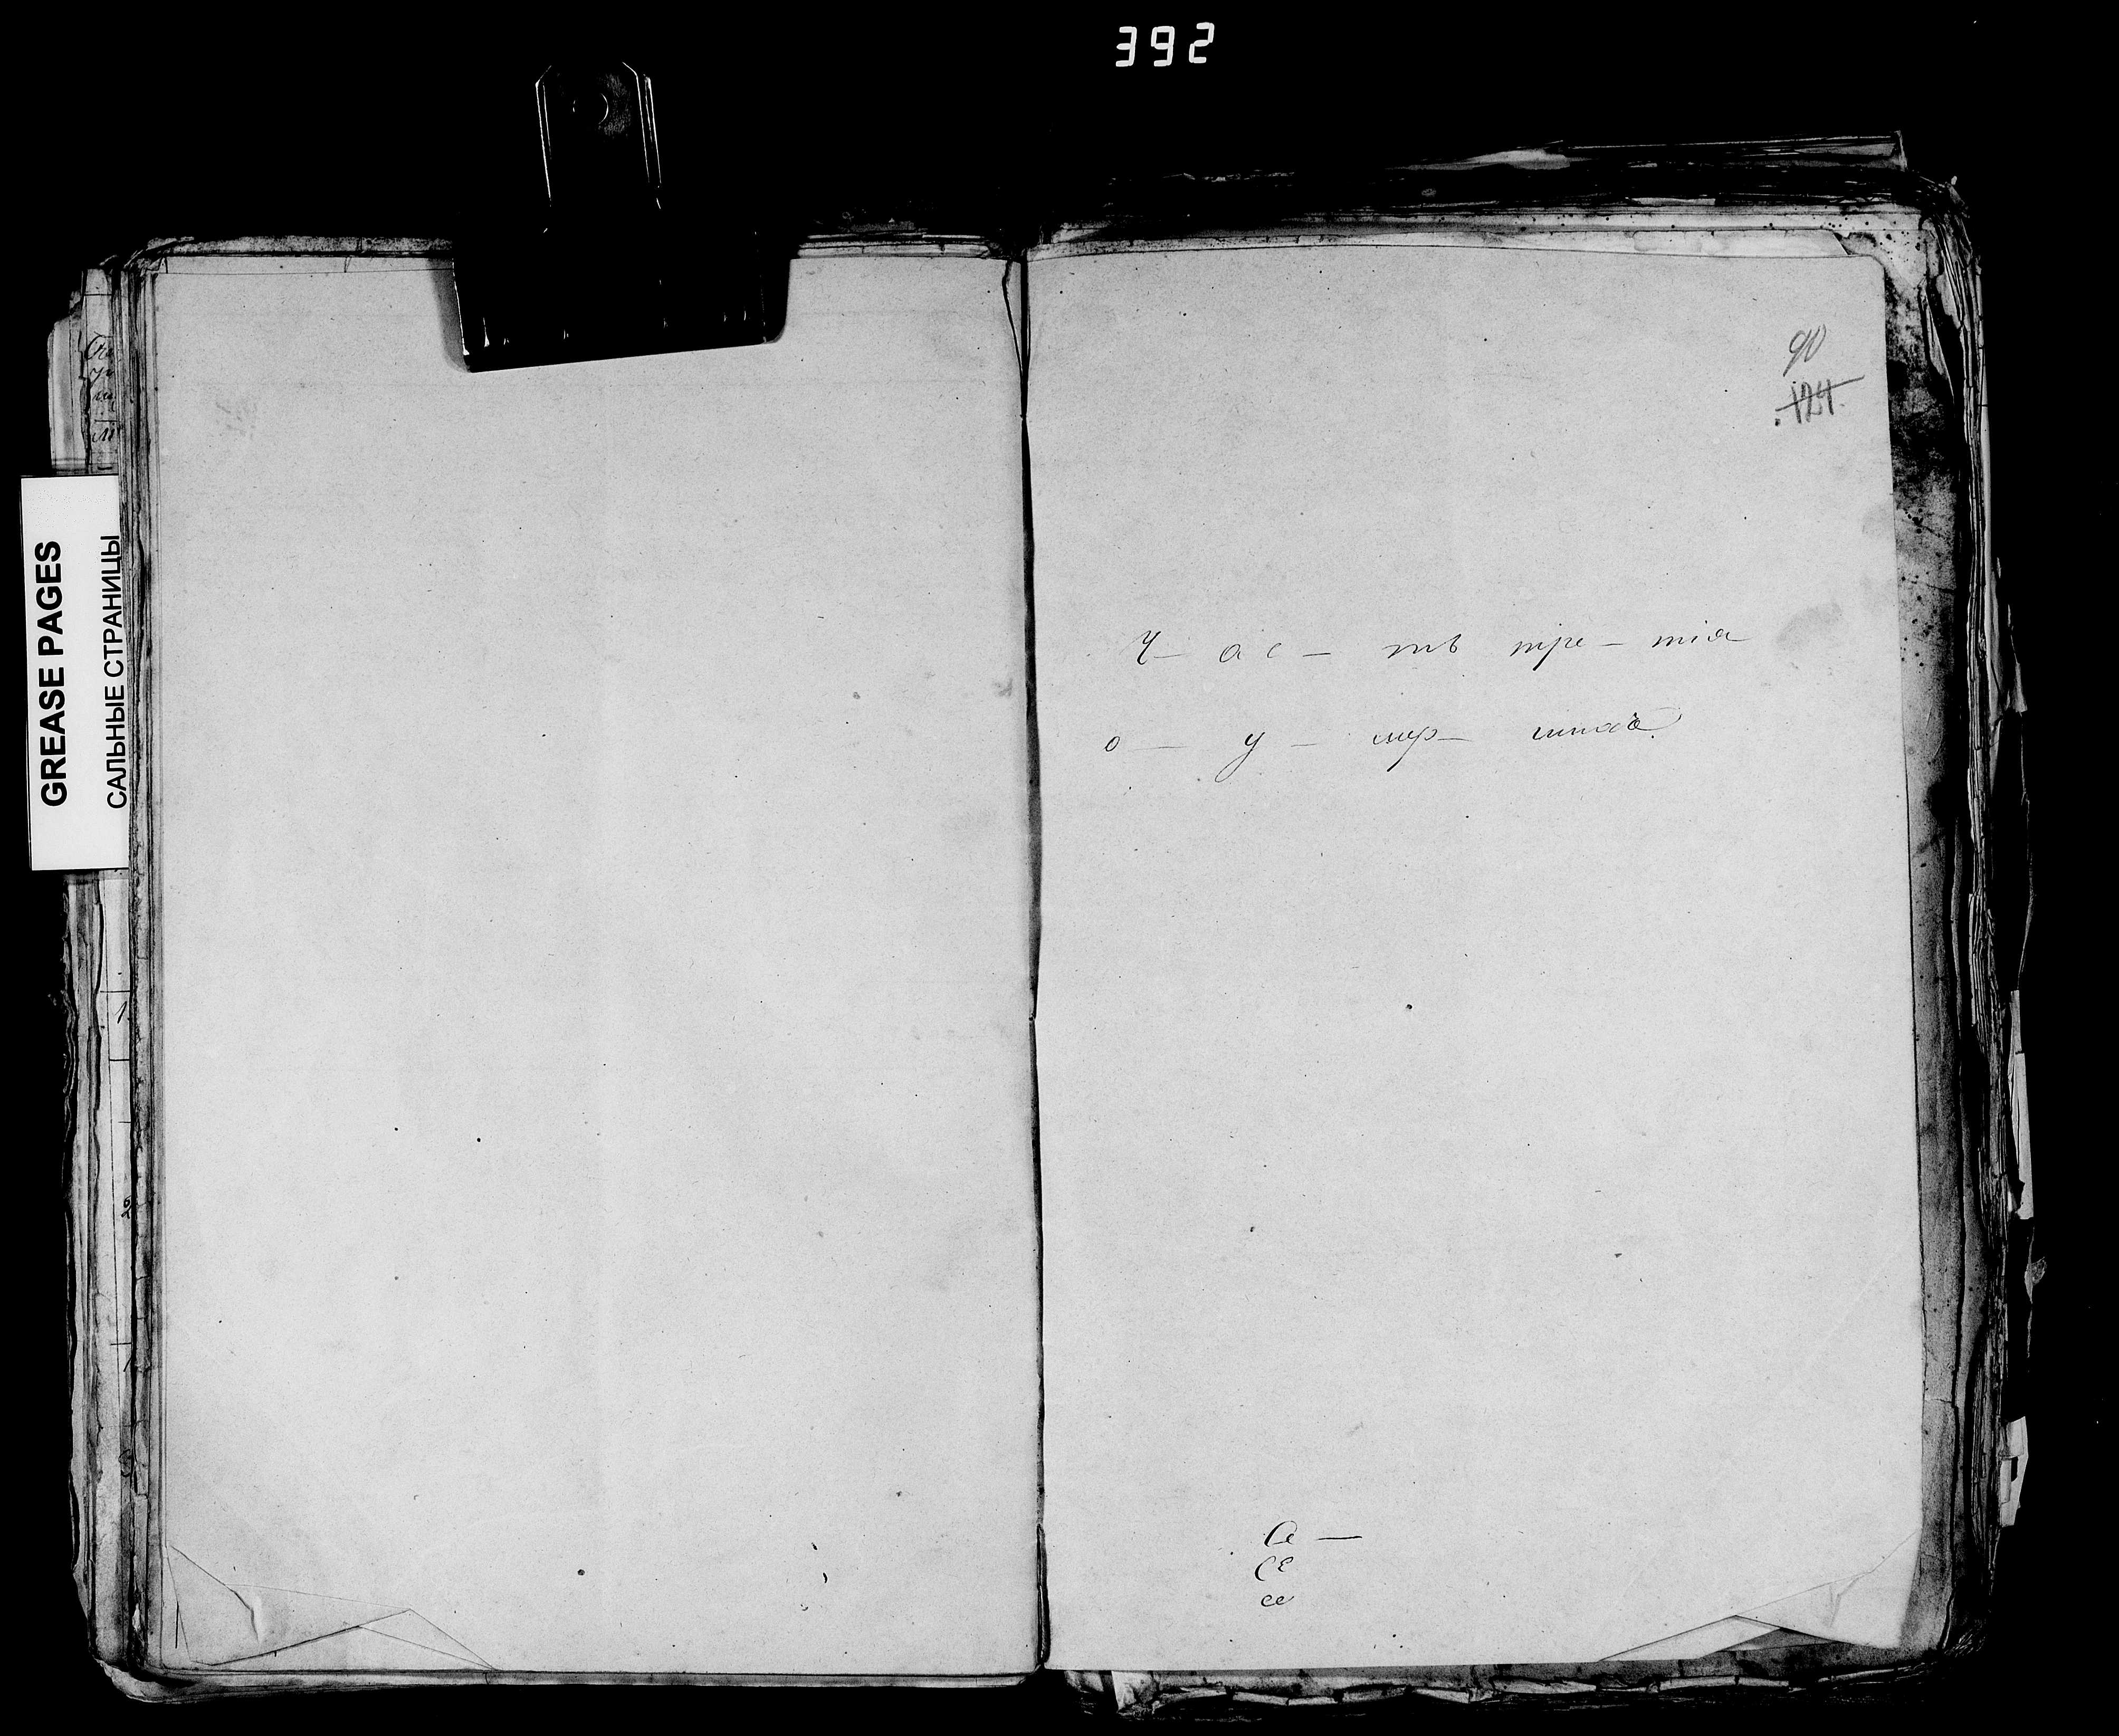 392
GREASE PAGES
САЛЬНЫЕ СТРАНИЦЫ
90
124.
Ч— ас— ть тре— тія
о — у — мер— шихъ.
Се —
се
се